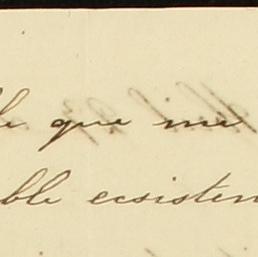 le que me
able ecsisten